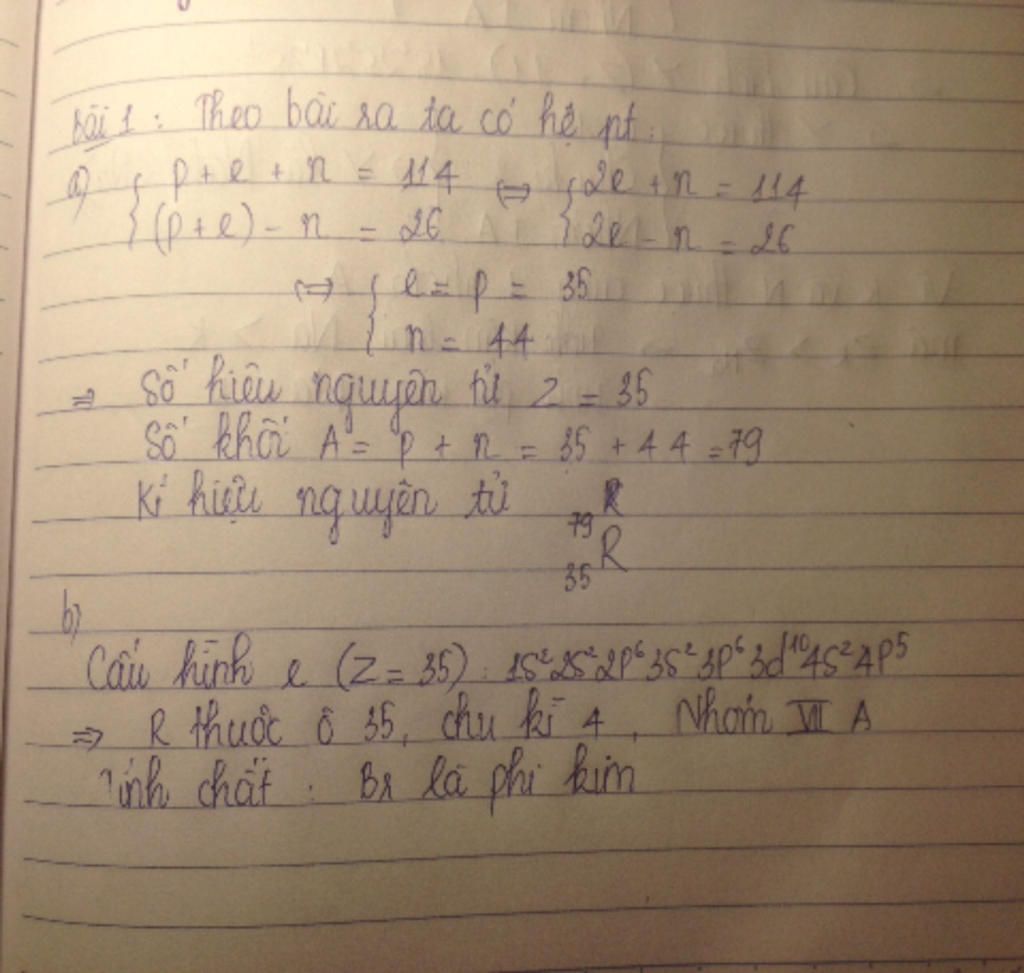 Bài 1: Theo bài ra ta có hệ pt:
a) { p + e + n = 114 ⇔ { 2e + n = 114
{ (p+e) - n = 26 { 2e - n = 26
⇔ { e = p = 35
{ n = 44
⇒ Số hiệu nguyên tử Z = 35
Số khối A = p + n = 35 + 44 = 79
Kí hiệu nguyên tử
79
R
35
b)
Cấu hình e (Z = 35): 1s²2s²2p⁶3s²3p⁶3d¹⁰4s²4p⁵
⇒ R thuộc ô 35, chu kì 4, Nhóm VII A
Tính chất: Br là phi kim